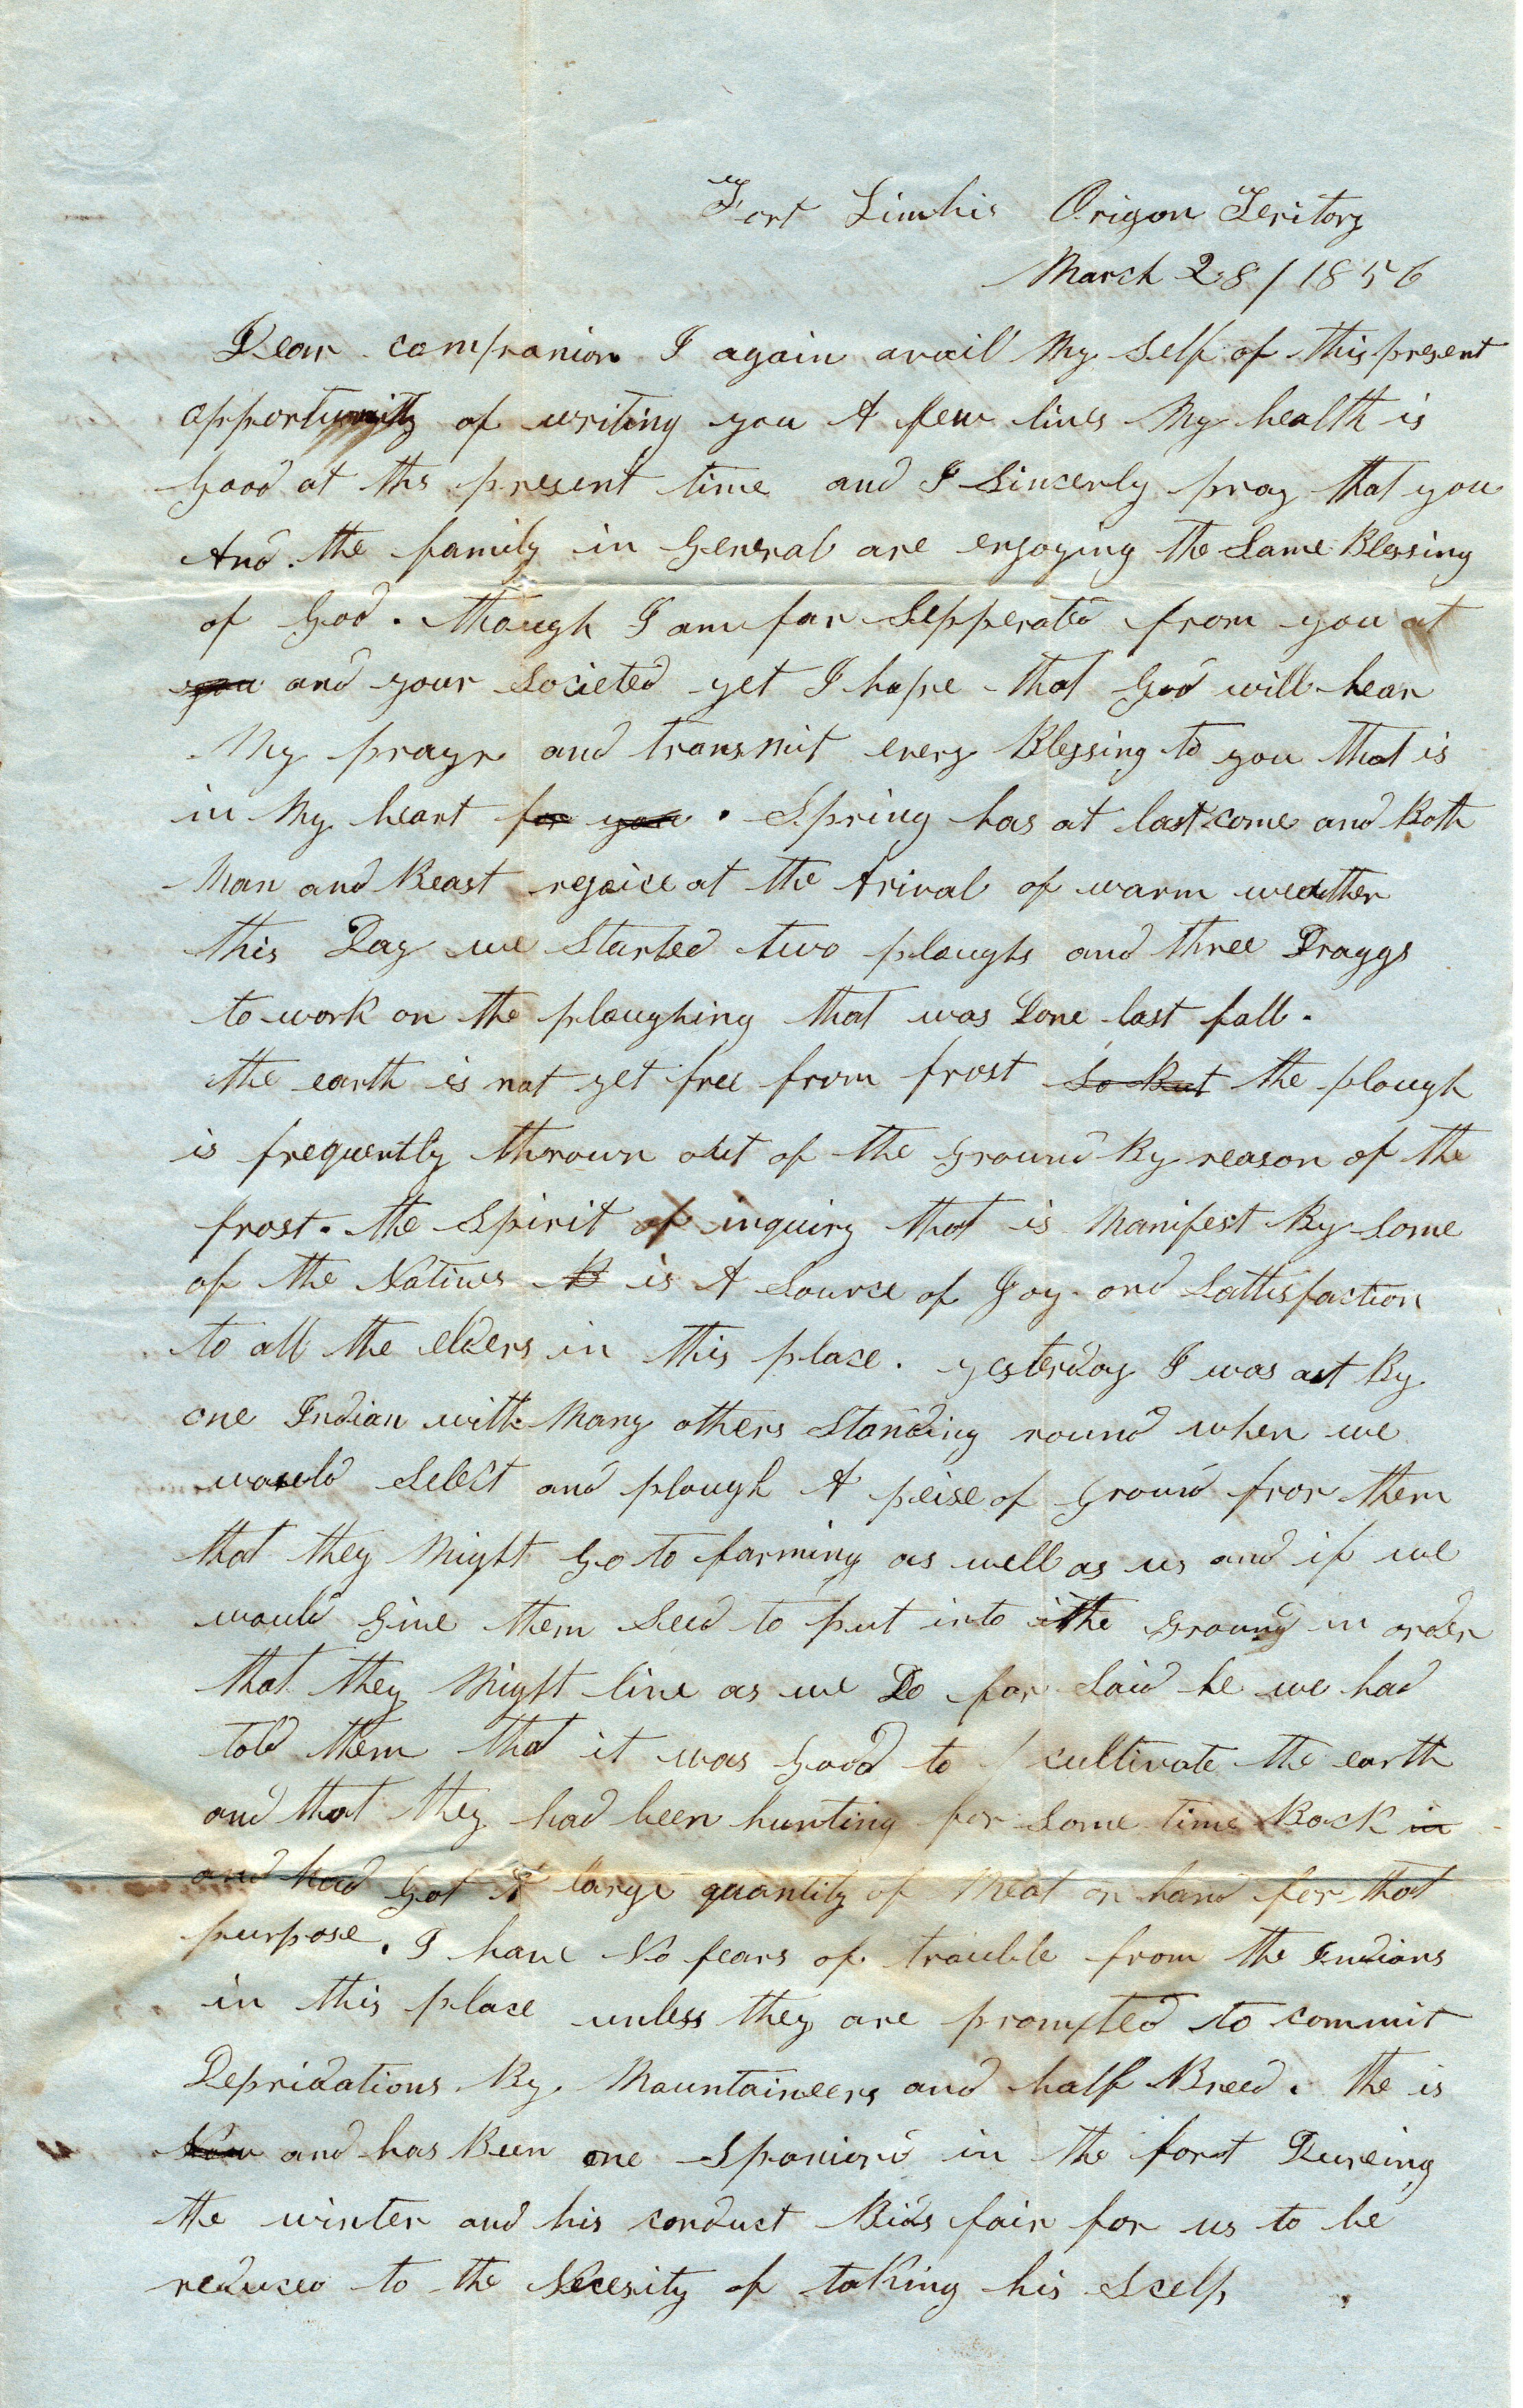 Fort Limhis Origon Teritory
March 28/1856
Dear companion I again avail My Self of this present
opportunity of writing you A few lines My health is
Good at ths present time and I Sincerly pray that you
And. the family in General are enjoying the Same Blessing
of God. though I am far Sepperated from you at
you and your Societed yet I hope that God will hear
My prayr and transmit every Blessing to you that is
in My heart for you. Spring has at last come and Both
Man and Beast rejoice at the Arival of warm weather
this Day we Started two ploughs and three Draggs
to work on the ploughing that was Done last fall.
the earth is not yet free from frost So But the plough
is frequently thrown out of the Ground By reason of the
frost. the Spirit of inquiry that is Manifest By Some
of the Natives B is A Source of Joy and Sattisfaction
to all the elders in this place. yesterday I was ast By
one Indian with Many others Standing round when we
would Select and plough A peise of Ground fror them
that they Might Go to farming as well as us and if we
would Give them Seed to put into the Ground in order
that they Might live as we Do for Said he we had
told them that it was Good to cultivate the earth
and that they had been hunting for Some time Back in
and had Got A large quantity of Meat on hand for that
purpose. I have No fears of trouble from the Indians
in this place unless they are prompted to commit
Depridations By. Mountaineers and half Breed. the is
Now and has Been one Spaniard in the fort Dureing
the winter and his conduct Bids fair for us to be
reduced to the Necesity of taking his Scelp